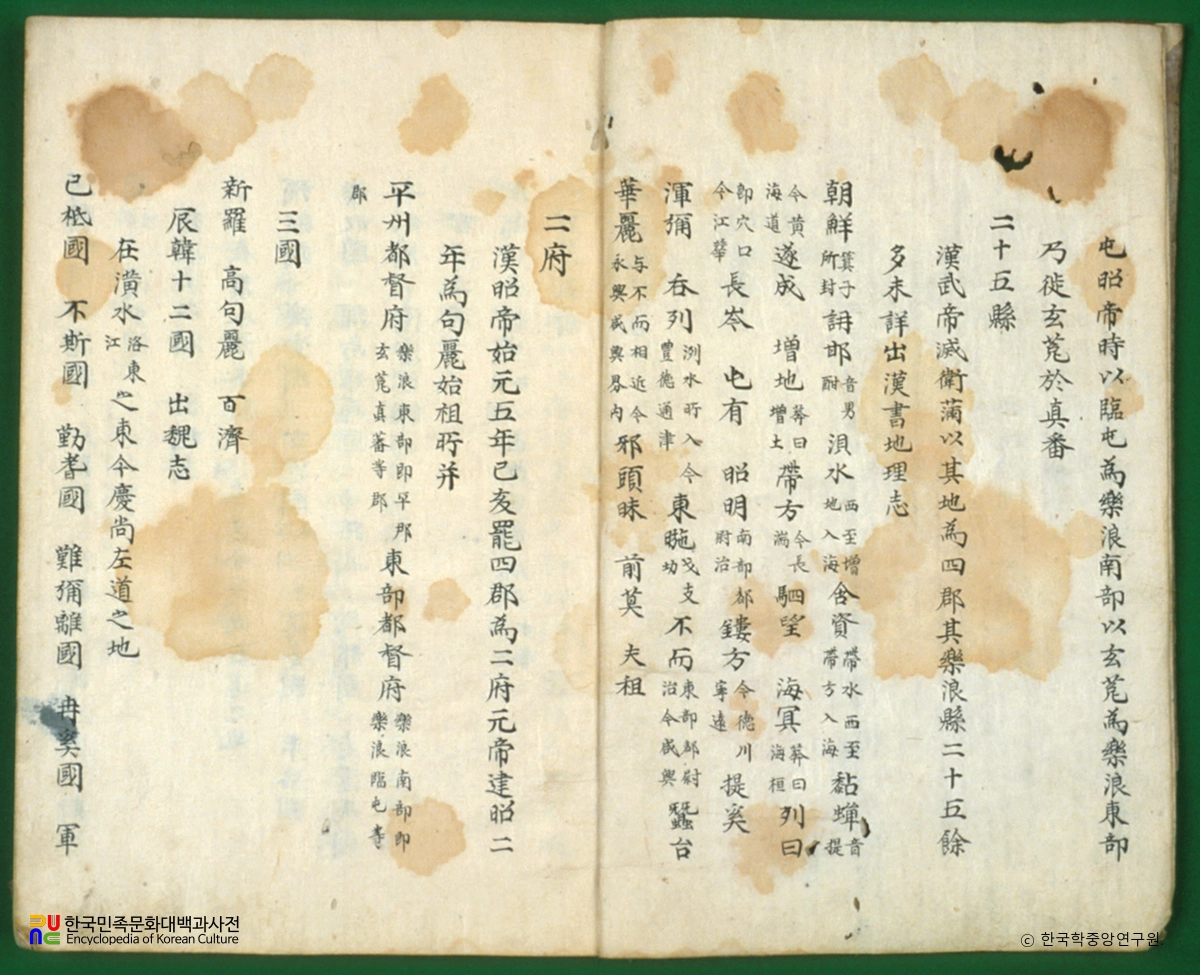 屯昭帝時以臨屯爲樂浪南部以玄菟爲樂浪東部
乃徙玄菟於真番
二十五縣
漢武帝滅衛滿以其地爲四郡其樂浪縣二十五餘
多未詳出漢書地理志
朝鮮箕子所封 䛁邯音男酣 浿水西至增地入海 含資帶水西至帶方入海 黏蟬音提
今黃海道 遂成 增地莽曰增土 帶方今長湍 駟望 海冥莽曰海桓 列口
即穴口今江華 長岑 屯有 昭明南部都尉治 鏤方今德川寧遠 提奚
渾彌 吞列洌水所入今豊德通津 東暆 不而東部都尉治今咸興 蠶台
華麗与不而相近今永興咸興界內 邪頭昧 前莫 夫租
二府
漢昭帝始元五年己亥罷四郡爲二府元帝建昭二
年爲句麗始祖所并
平州都督府樂浪東部即平那玄菟真蕃等郡 東部都督府樂浪南部即樂浪臨屯等
郡
三國
新羅 高句麗 百濟
辰韓十二國 出魏志
在潢水洛東江之東今慶尚左道之地
已柢國 不斯國 勤耆國 難彌離國 冉奚國 軍
한국민족문화대백과사전
Encyclopedia of Korean Culture
ⓒ 한국학중앙연구원